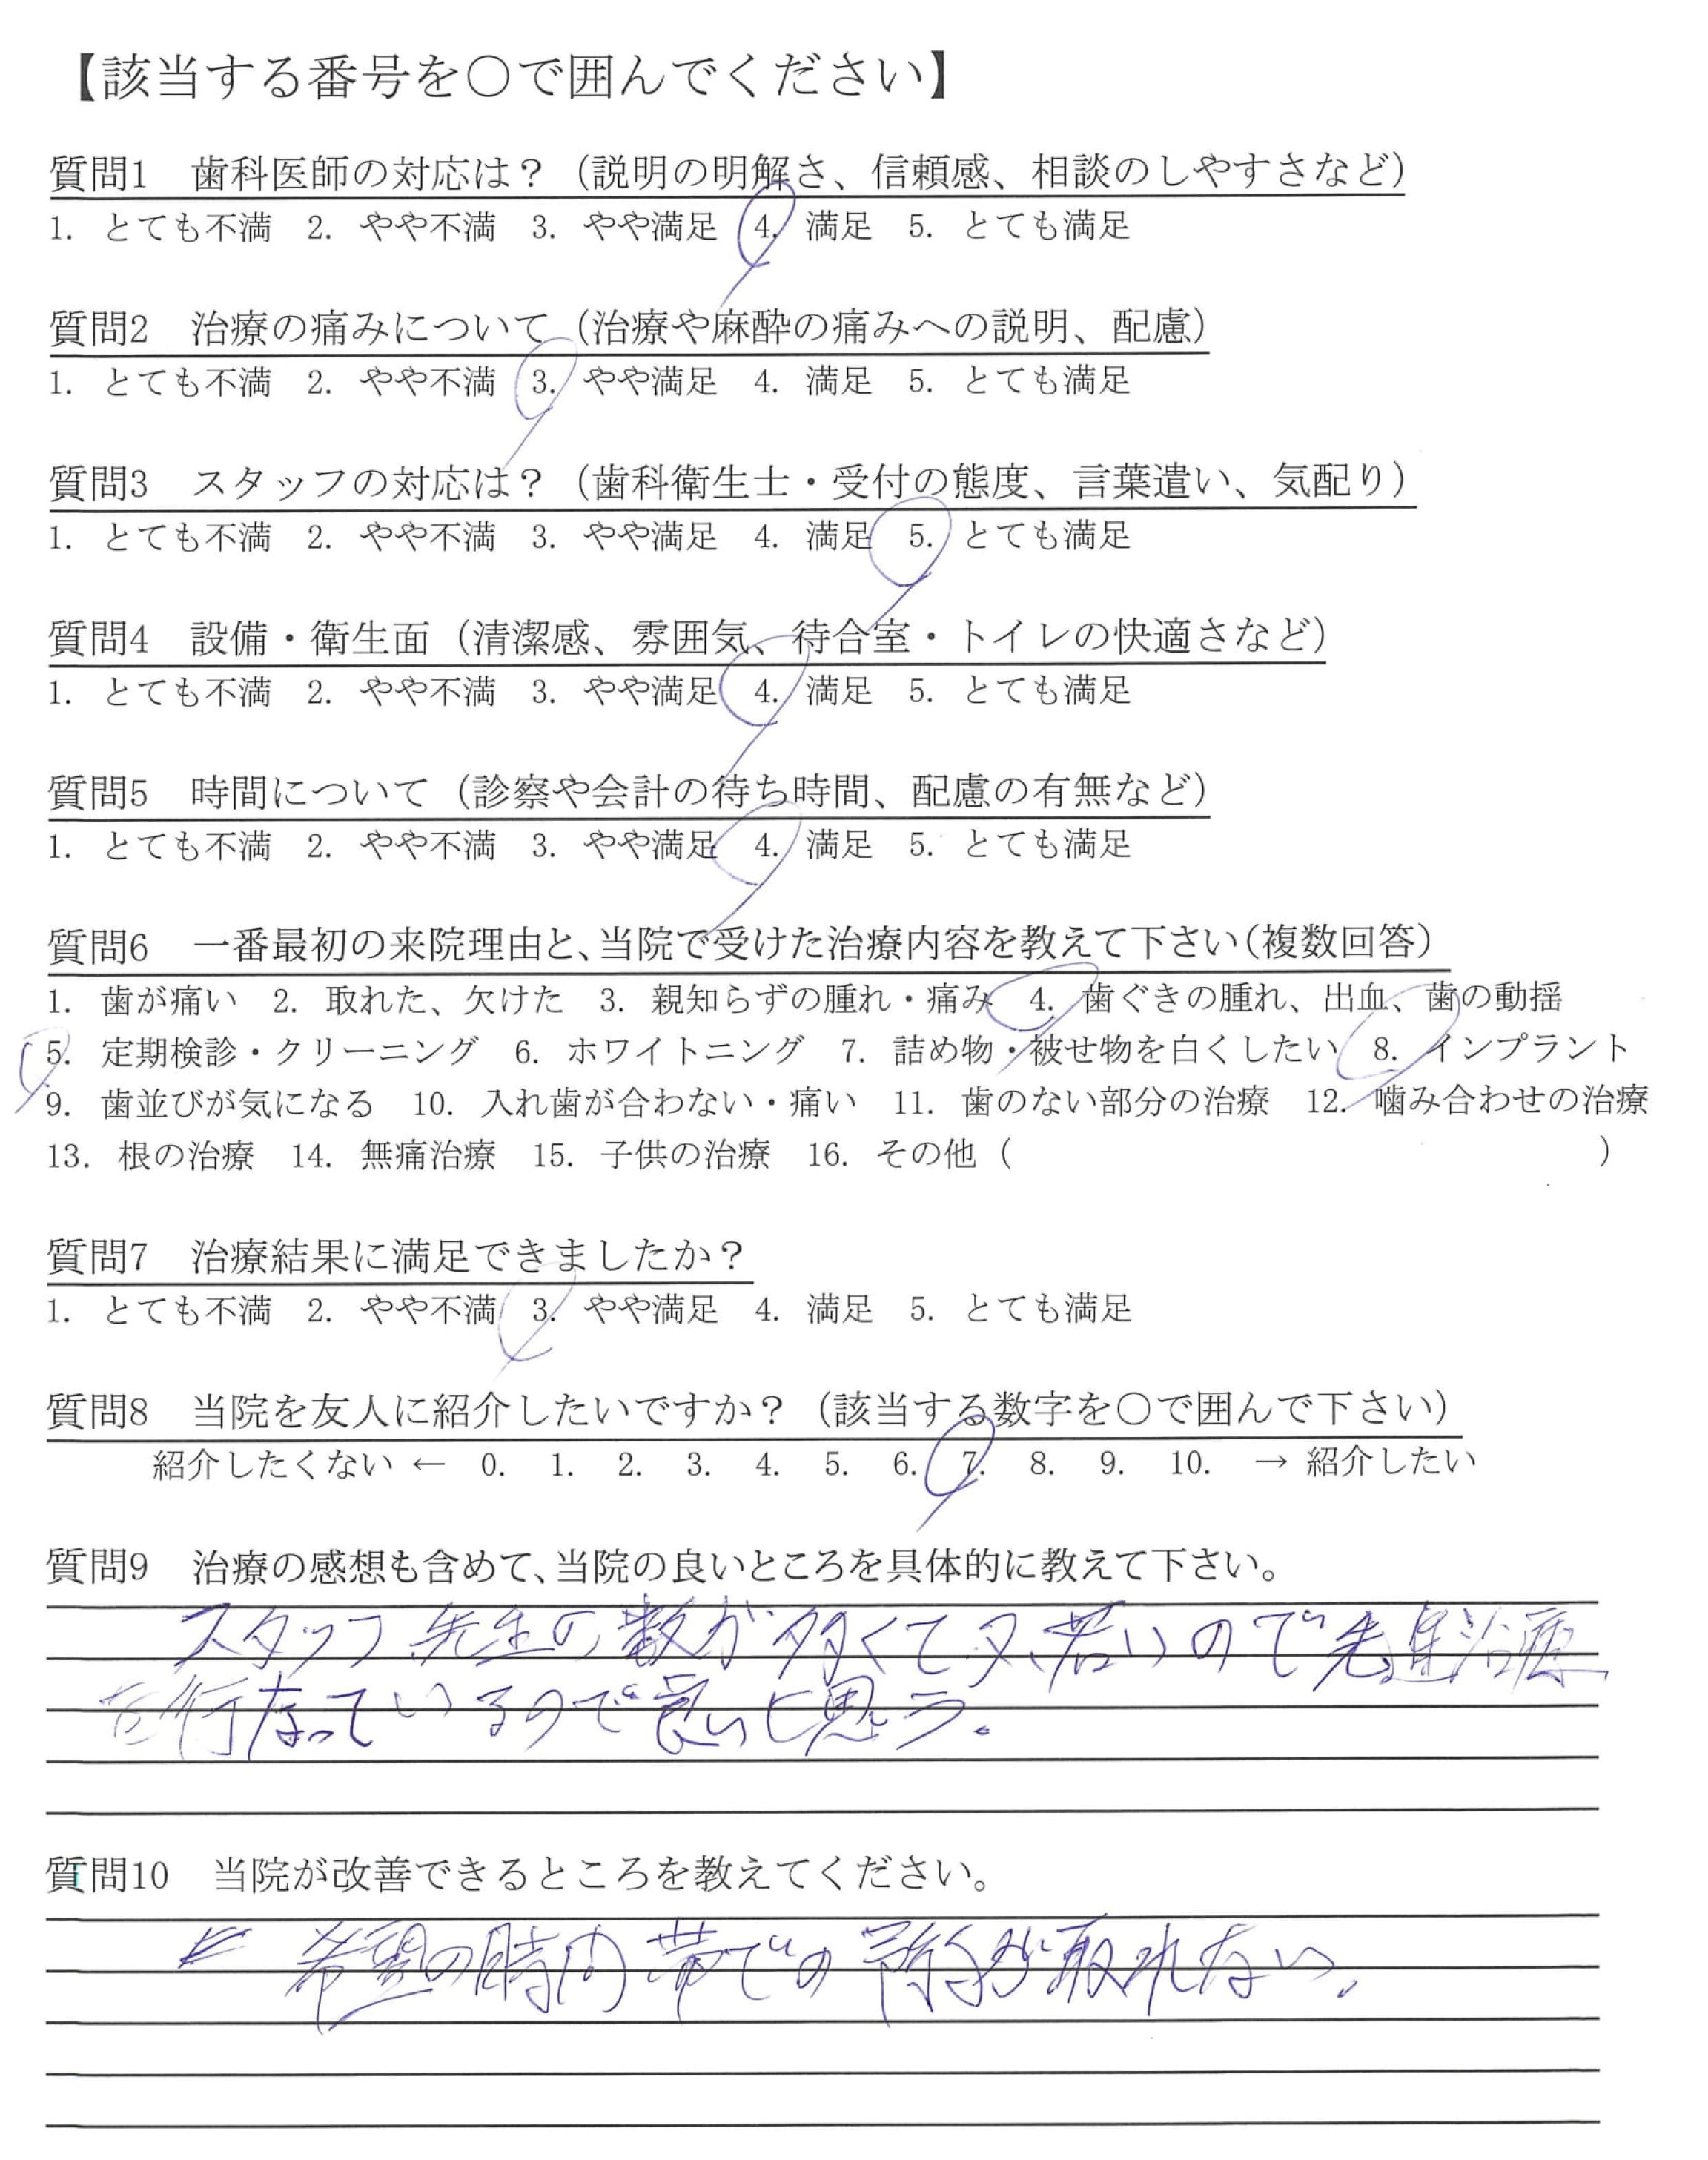 【該当する番号を○で囲んでください】
質問1　歯科医師の対応は？（説明の明解さ、信頼感、相談のしやすさなど）
1. とても不満　2. やや不満　3. やや満足　4. 満足　5. とても満足
質問2　治療の痛みについて（治療や麻酔の痛みへの説明、配慮）
1. とても不満　2. やや不満　3. やや満足　4. 満足　5. とても満足
質問3　スタッフの対応は？（歯科衛生士・受付の態度、言葉遣い、気配り）
1. とても不満　2. やや不満　3. やや満足　4. 満足　5. とても満足
質問4　設備・衛生面（清潔感、雰囲気、待合室・トイレの快適さなど）
1. とても不満　2. やや不満　3. やや満足　4. 満足　5. とても満足
質問5　時間について（診察や会計の待ち時間、配慮の有無など）
1. とても不満　2. やや不満　3. やや満足　4. 満足　5. とても満足
質問6　一番最初の来院理由と、当院で受けた治療内容を教えて下さい（複数回答）
1. 歯が痛い　2. 取れた、欠けた　3. 親知らずの腫れ・痛み　4. 歯ぐきの腫れ、出血、歯の動揺
5. 定期検診・クリーニング　6. ホワイトニング　7. 詰め物・被せ物を白くしたい　8. インプラント
9. 歯並びが気になる　10. 入れ歯が合わない・痛い　11. 歯のない部分の治療　12. 噛み合わせの治療
13. 根の治療　14. 無痛治療　15. 子供の治療　16. その他（　　　　　　　　　　）
質問7　治療結果に満足できましたか？
1. とても不満　2. やや不満　3. やや満足　4. 満足　5. とても満足
質問8　当院を友人に紹介したいですか？（該当する数字を○で囲んで下さい）
紹介したくない ← 0. 1. 2. 3. 4. 5. 6. 7. 8. 9. 10. → 紹介したい
質問9　治療の感想も含めて、当院の良いところを具体的に教えて下さい。
スタッフ、先生の数が多くて又、若いので先進治療
を行なっているので良いと思う。
質問10　当院が改善できるところを教えてください。
希望の時間帯での予約が取れない。